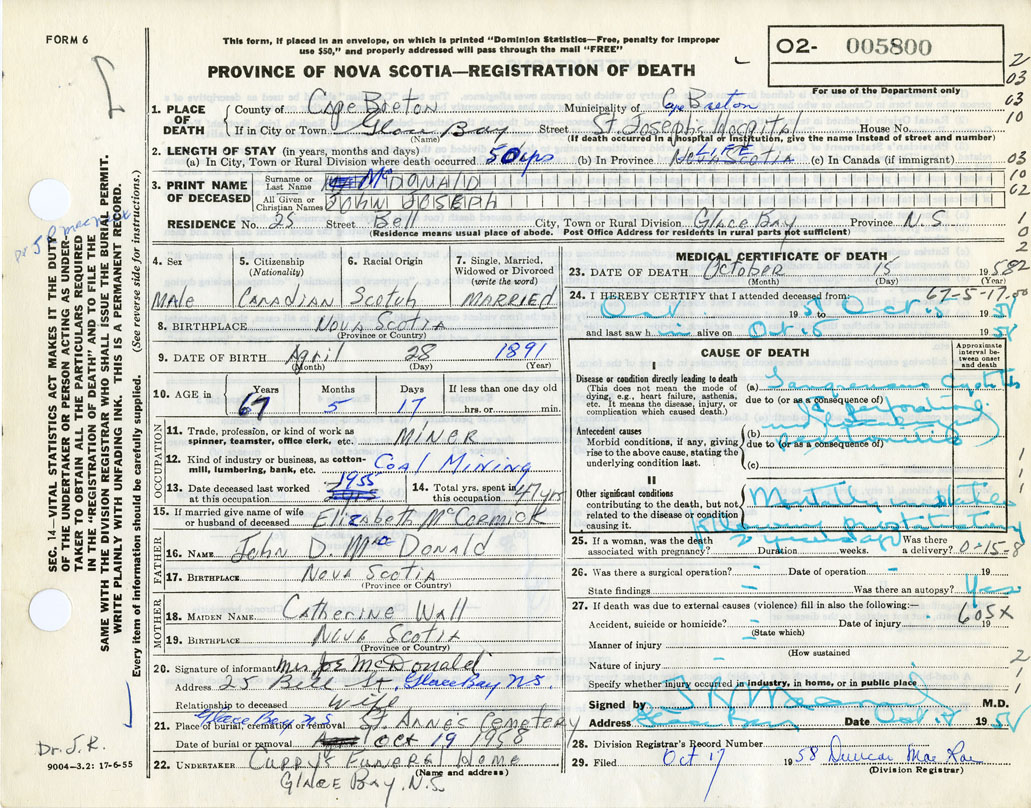 FORM 6
This form, if placed in an envelope, on which is printed "Dominion Statistics—Free, penalty for improper
use $50," and properly addressed will pass through the mail "FREE"
PROVINCE OF NOVA SCOTIA—REGISTRATION OF DEATH
02- 005800
For use of the Department only
1. PLACE OF DEATH County of Cape Breton Municipality of Cape Breton
If in City or Town Glace Bay Street St. Joseph's Hospital House No.
(Name) (If death occurred in a hospital or institution, give the name instead of street and number)
2. LENGTH OF STAY (in years, months and days)
(a) In City, Town or Rural Division where death occurred 50 yrs (b) In Province LIFE Nova Scotia (c) In Canada (if immigrant)
3. PRINT NAME OF DECEASED Surname or Last Name McDONALD
All Given or Christian Names JOHN JOSEPH
RESIDENCE No. 25 Street Bell City, Town or Rural Division Glace Bay Province N.S
(Residence means usual place of abode. Post Office Address for residents in rural parts not sufficient)
4. Sex Male
5. Citizenship (Nationality) Canadian
6. Racial Origin Scotch
7. Single, Married, Widowed or Divorced (write the word) MARRIED
8. BIRTHPLACE Nova Scotia
(Province or Country)
9. DATE OF BIRTH April 28 1891
(Month) (Day) (Year)
10. AGE in Years 67 Months 5 Days 17 If less than one day old hrs. or min.
OCCUPATION
11. Trade, profession, or kind of work as spinner, teamster, office clerk, etc. MINER
12. Kind of industry or business, as cotton-mill, lumbering, bank, etc. Coal Mining
13. Date deceased last worked at this occupation 1955
14. Total yrs. spent in this occupation 47 yrs
15. If married give name of wife or husband of deceased Elizabeth McCormick
FATHER
16. NAME John D. MacDonald
17. BIRTHPLACE Nova Scotia
(Province or Country)
MOTHER
18. MAIDEN NAME Catherine Wall
19. BIRTHPLACE Nova Scotia
(Province or Country)
20. Signature of informant Mrs Joe McDonald
Address 25 Bell St. Glace Bay N.S.
Relationship to deceased Wife
21. Place of burial, cremation or removal Glace Bay N.S St. Anne's Cemetery
Date of burial or removal Oct 19 1958
22. UNDERTAKER Curry's Funeral Home
(Name and address)
Glace Bay, N.S
MEDICAL CERTIFICATE OF DEATH
23. DATE OF DEATH October 15 1958
(Month) (Day) (Year)
24. I HEREBY CERTIFY that I attended deceased from: 67-5-17.00
Oct 1958 to Oct 15 1958
and last saw him alive on Oct 15 1958
CAUSE OF DEATH
Approximate interval between onset and death
I
Disease or condition directly leading to death
(This does not mean the mode of dying, e.g., heart failure, asthenia, etc. It means the disease, injury, or complication which caused death.)
(a) Gangrenous Cystitis
due to (or as a consequence of)
Antecedent causes
Morbid conditions, if any, giving rise to the above cause, stating the underlying condition last.
(b)
due to (or as a consequence of)
(c)
II
Other significant conditions
contributing to the death, but not related to the disease or condition causing it.
2 years ago
25. If a woman, was the death associated with pregnancy? Duration weeks. Was there a delivery? 0-15-8
26. Was there a surgical operation? - Date of operation -
State findings - Was there an autopsy? Yes
27. If death was due to external causes (violence) fill in also the following:—
605X
Accident, suicide or homicide? - Date of injury 19
(State which)
Manner of injury -
(How sustained
Nature of injury -
Specify whether injury occurred in industry, in home, or in public place
Signed by M.D.
Address Glace Bay Date Oct 1958
28. Division Registrar's Record Number
29. Filed Oct 17 1958 Duncan MacRae
(Division Registrar)
SEC. 14—VITAL STATISTICS ACT MAKES IT THE DUTY
OF THE UNDERTAKER OR PERSON ACTING AS UNDER-
TAKER TO OBTAIN ALL THE PARTICULARS REQUIRED
IN THE "REGISTRATION OF DEATH" AND TO FILE THE
SAME WITH THE DIVISION REGISTRAR WHO SHALL ISSUE THE BURIAL PERMIT.
WRITE PLAINLY WITH UNFADING INK. THIS IS A PERMANENT RECORD.
Every item of information should be carefully supplied. (See reverse side for instructions.)
Dr. J.R.
9004-3.2: 17-6-55
2
03
03
10
03
10
62
1
0
2